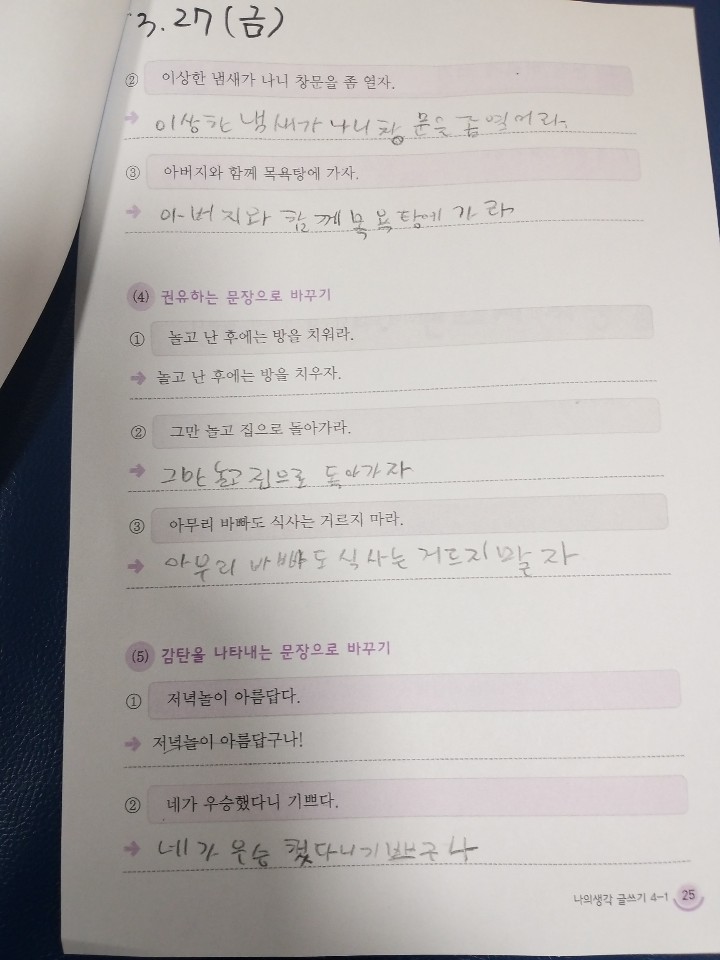 3.27(금)
② 이상한 냄새가 나니 창문을 좀 열자.
➜ 이상한 냄새가 나니 창문을 좀 열어라.
③ 아버지와 함께 목욕탕에 가자.
➜ 아버지와 함께 목욕탕에 가라
(4) 권유하는 문장으로 바꾸기
① 놀고 난 후에는 방을 치워라.
➜ 놀고 난 후에는 방을 치우자.
② 그만 놀고 집으로 돌아가라.
➜ 그만 놀고 집으로 돌아가자
③ 아무리 바빠도 식사는 거르지 마라.
➜ 아무리 바빠도 식사는 거르지 말자
(5) 감탄을 나타내는 문장으로 바꾸기
① 저녁놀이 아름답다.
➜ 저녁놀이 아름답구나!
② 네가 우승했다니 기쁘다.
➜ 네가 우승 했다니 기쁘구나
나의생각 글쓰기 4-1 25